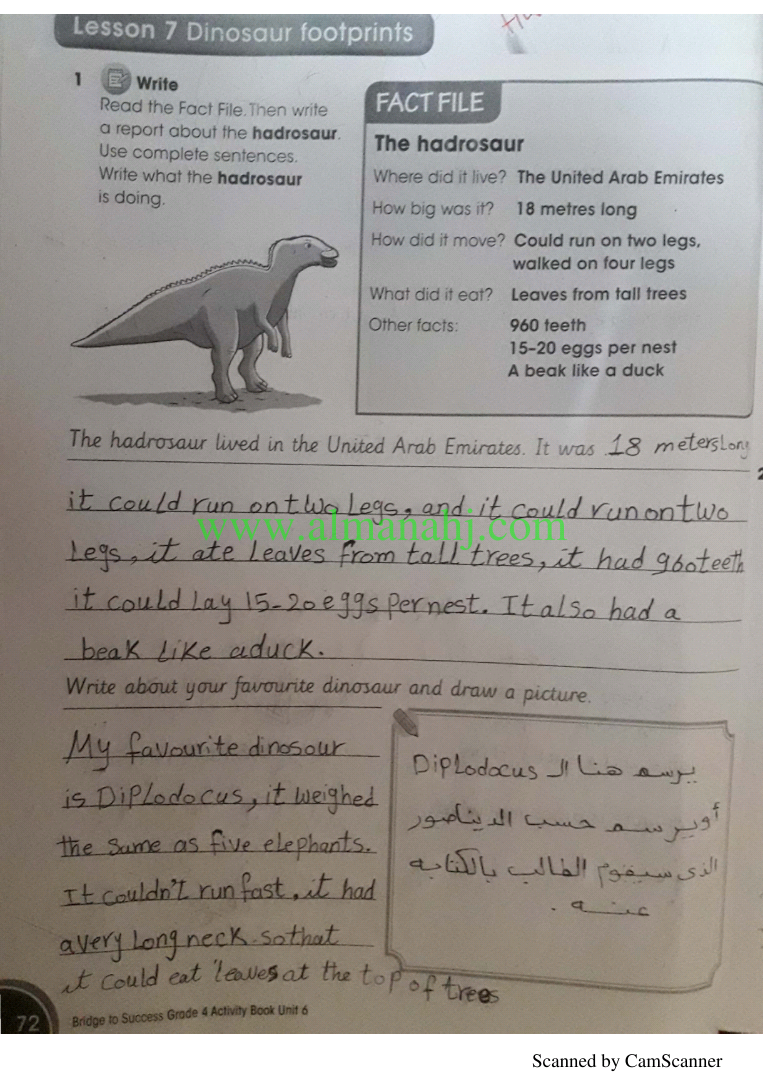 Lesson 7 Dinosaur footprints
1 Write
Read the Fact File. Then write
a report about the hadrosaur.
Use complete sentences.
Write what the hadrosaur
is doing.
FACT FILE
The hadrosaur
Where did it live? The United Arab Emirates
How big was it? 18 metres long
How did it move? Could run on two legs,
walked on four legs
What did it eat? Leaves from tall trees
Other facts: 960 teeth
15-20 eggs per nest
A beak like a duck
The hadrosaur lived in the United Arab Emirates. It was 18 meters Long
it could run on two Legs, and it could run on two
Legs, it ate Leaves from tall trees, it had 960 teeth
www.almanahj.com
it could Lay 15-20 eggs per nest. It also had a
beak like a duck.
Write about your favourite dinosaur and draw a picture.
My favourite dinosour
is Diplodocus, it weighed
the same as five elephants.
It couldn't run fast, it had
a very Long neck so that
it could eat leaves at the top of trees
يرسم هنا ال Diplodocus
أويرسم حسب الديناصور
الذى سيقوم الطالب بالكتابه
عنه .
72 Bridge to Success Grade 4 Activity Book Unit 6
Scanned by CamScanner